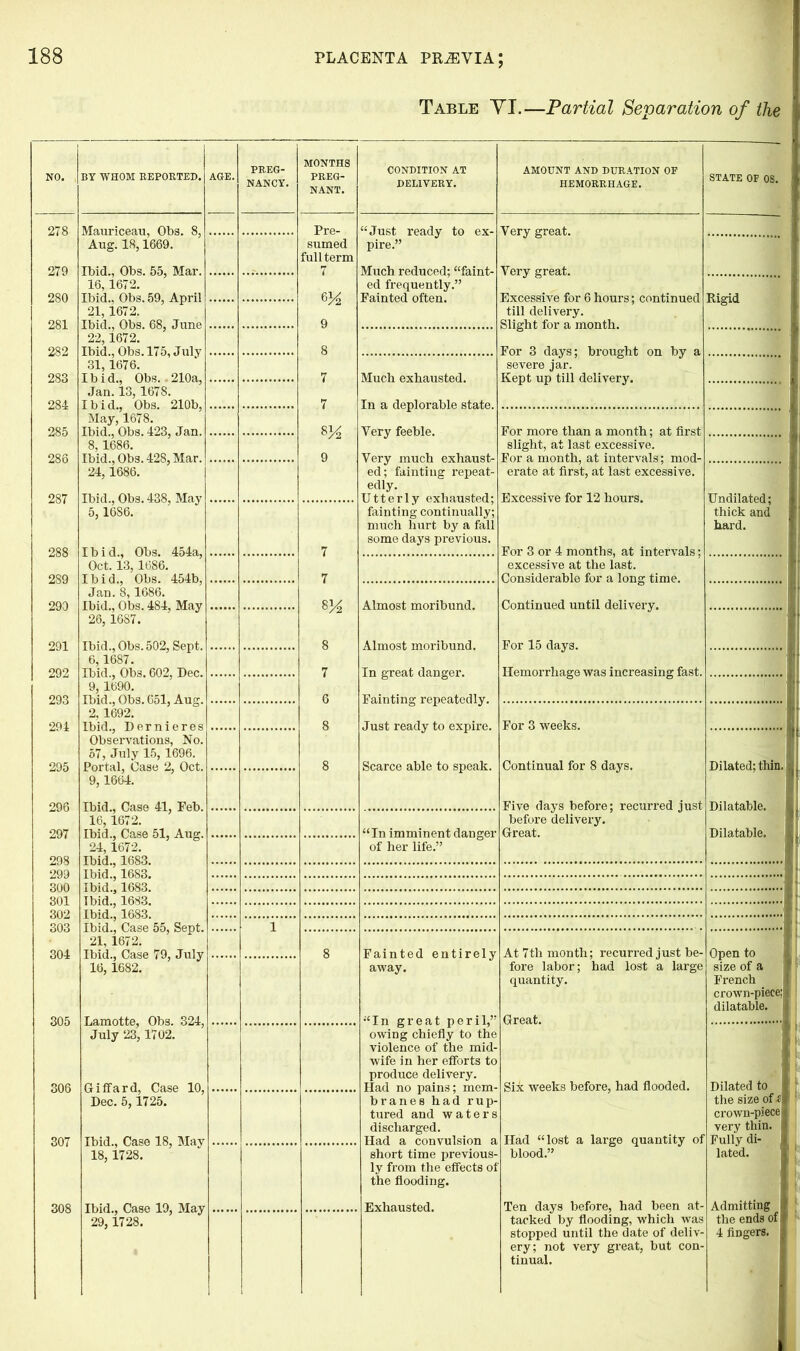 188 PLACENTA PRÆVIA;
TABLE VI.—Partial Separation of the
NO. BY WHOM REPORTED. AGE. PREG-NANCY. MONTHS PREG-NANT. CONDITION AT DELIVERY. AMOUNT AND DURATION OF HEMORRHAGE. STATE OF OS.
278 Mauriceau, Obs. 8, ...... ............ Pre- “Just ready to ex- Very great. ..................
Aug. 18, 1669. sumed pire.”
full term
279 Ibid., Obs. 55, Mar. ...... ............ 7 Much reduced; “faint- Very great. ..................
16, 1672. ed frequently.”
280 Ibid., Obs. 59, April ...... ............ 6½ Fainted often. Excessive for 6 hours; continued Rigid
21, 1672. till delivery.
281 Ibid., Obs. 68, June ...... ............ 9 .................. Slight for a month. ..................
22, 1672.
282 Ibid., Obs. 175, July ...... ............ 8 .................. For 3 days; brought on by a ..................
31, 1676. severe jar.
283 Ibid., Obs. 210a, ...... ............ 7 Much exhausted. Kept up till delivery. ..................
Jan. 13, 1678.
284 Ibid., Obs. 210b, ...... ............ 7 In a deplorable state. .................. ..................
May, 1678.
285 Ibid., Obs. 423, Jan. ...... ............ 8½ Very feeble. For more than a month; at first ..................
8, 1686. slight, at last excessive.
286 Ibid., Obs. 428, Mar. ...... ............ 9 Very much exhaust- For a month, at intervals; mod- ..................
24, 1686. ed; fainting repeat- erate at first, at last excessive.
edly.
287 Ibid., Obs. 438, May ...... ............ ............ Utterly exhausted; Excessive for 12 hours. Undilated;
5, 1686. fainting continually; thick and
much hurt by a fall hard.
some days previous.
288 Ibid., Obs. 454a, ...... ............ 7 .................. For 3 or 4 months, at intervals; ..................
Oct. 13, 1686. excessive at the last.
289 Ibid., Obs. 454b, ...... ............ 7 .................. Considerable for a long time. ..................
Jan. 8, 1686.
290 Ibid., Obs. 484, May ...... ............ 8½ Almost moribund. Continued until delivery. ..................
26, 1687.
291 Ibid., Obs. 502, Sept. ...... ............ 8 Almost moribund. For 15 days. ..................
6, 1687.
292 Ibid., Obs. 602, Dec. ...... ............ 7 In great danger. Hemorrhage was increasing fast. ..................
9, 1690.
293 Ibid., Obs. 651, Aug. ...... ............ 6 Fainting repeatedly. .................. ..................
2, 1692.
294 Ibid., Dernieres ...... ............ 8 Just ready to expire. For 3 weeks. ..................
Observations, No.
57, July 15, 1696.
295 Portal, Case 2, Oct. ...... ............ 8 Scarce able to speak. Continual for 8 days. Dilated; thin.
9, 1664.
296 Ibid., Case 41, Feb. ...... ............ ............ .................. Five days before; recurred just Dilatable.
16, 1672. before delivery.
297 Ibid., Case 51, Aug. ...... ............ ............ “In imminent danger Great. Dilatable.
24, 1672. of her life.”
298 Ibid., 1683. ...... ............ ............ .................. .................. ..................
299 Ibid., 1683. ...... ............ ............ .................. .................. ..................
300 Ibid., 1683. ...... ............ ............ .................. .................. ..................
301 Ibid., 1683. ...... ............ ............ .................. .................. ..................
302 Ibid., 1683. ...... ............ ............ .................. .................. ..................
303 Ibid., Case 55, Sept. ...... 1 ............ .................. .................. ..................
21, 1672.
304 Ibid., Case 79, July ...... ............ 8 Fainted entirely At 7th month; recurred just be- Open to
16, 1682. away. fore labor; had lost a large size of a
quantity. French
crown-piece;
dilatable.
305 Lamotte, Obs. 324, ...... ............ ............ “In great peril,” Great. ..................
July 23, 1702. owing chiefly to the
violence of the mid-
wife in her efforts to
produce delivery.
306 Giffard, Case 10, ...... ............ ............ Had no pains; mem- Six weeks before, had flooded. Dilated to
Dec. 5, 1725. branes had rup- the size of
tured and waters crown-piece
discharged. very thin.
307 Ibid., Case 18, May ...... ............ ............ Had a convulsion a Had “lost a large quantity of Fully di-
18, 1728. short time previous- blood.” lated.
ly from the effects of
the flooding.
308 Ibid., Case 19, May ...... ............ ............ Exhausted. Ten days before, had been at- Admitting
29, 1728. tacked by flooding, which was the ends of
stopped until the date of deliv- 4 fingers.
ery; not very great, but con-
tinual.